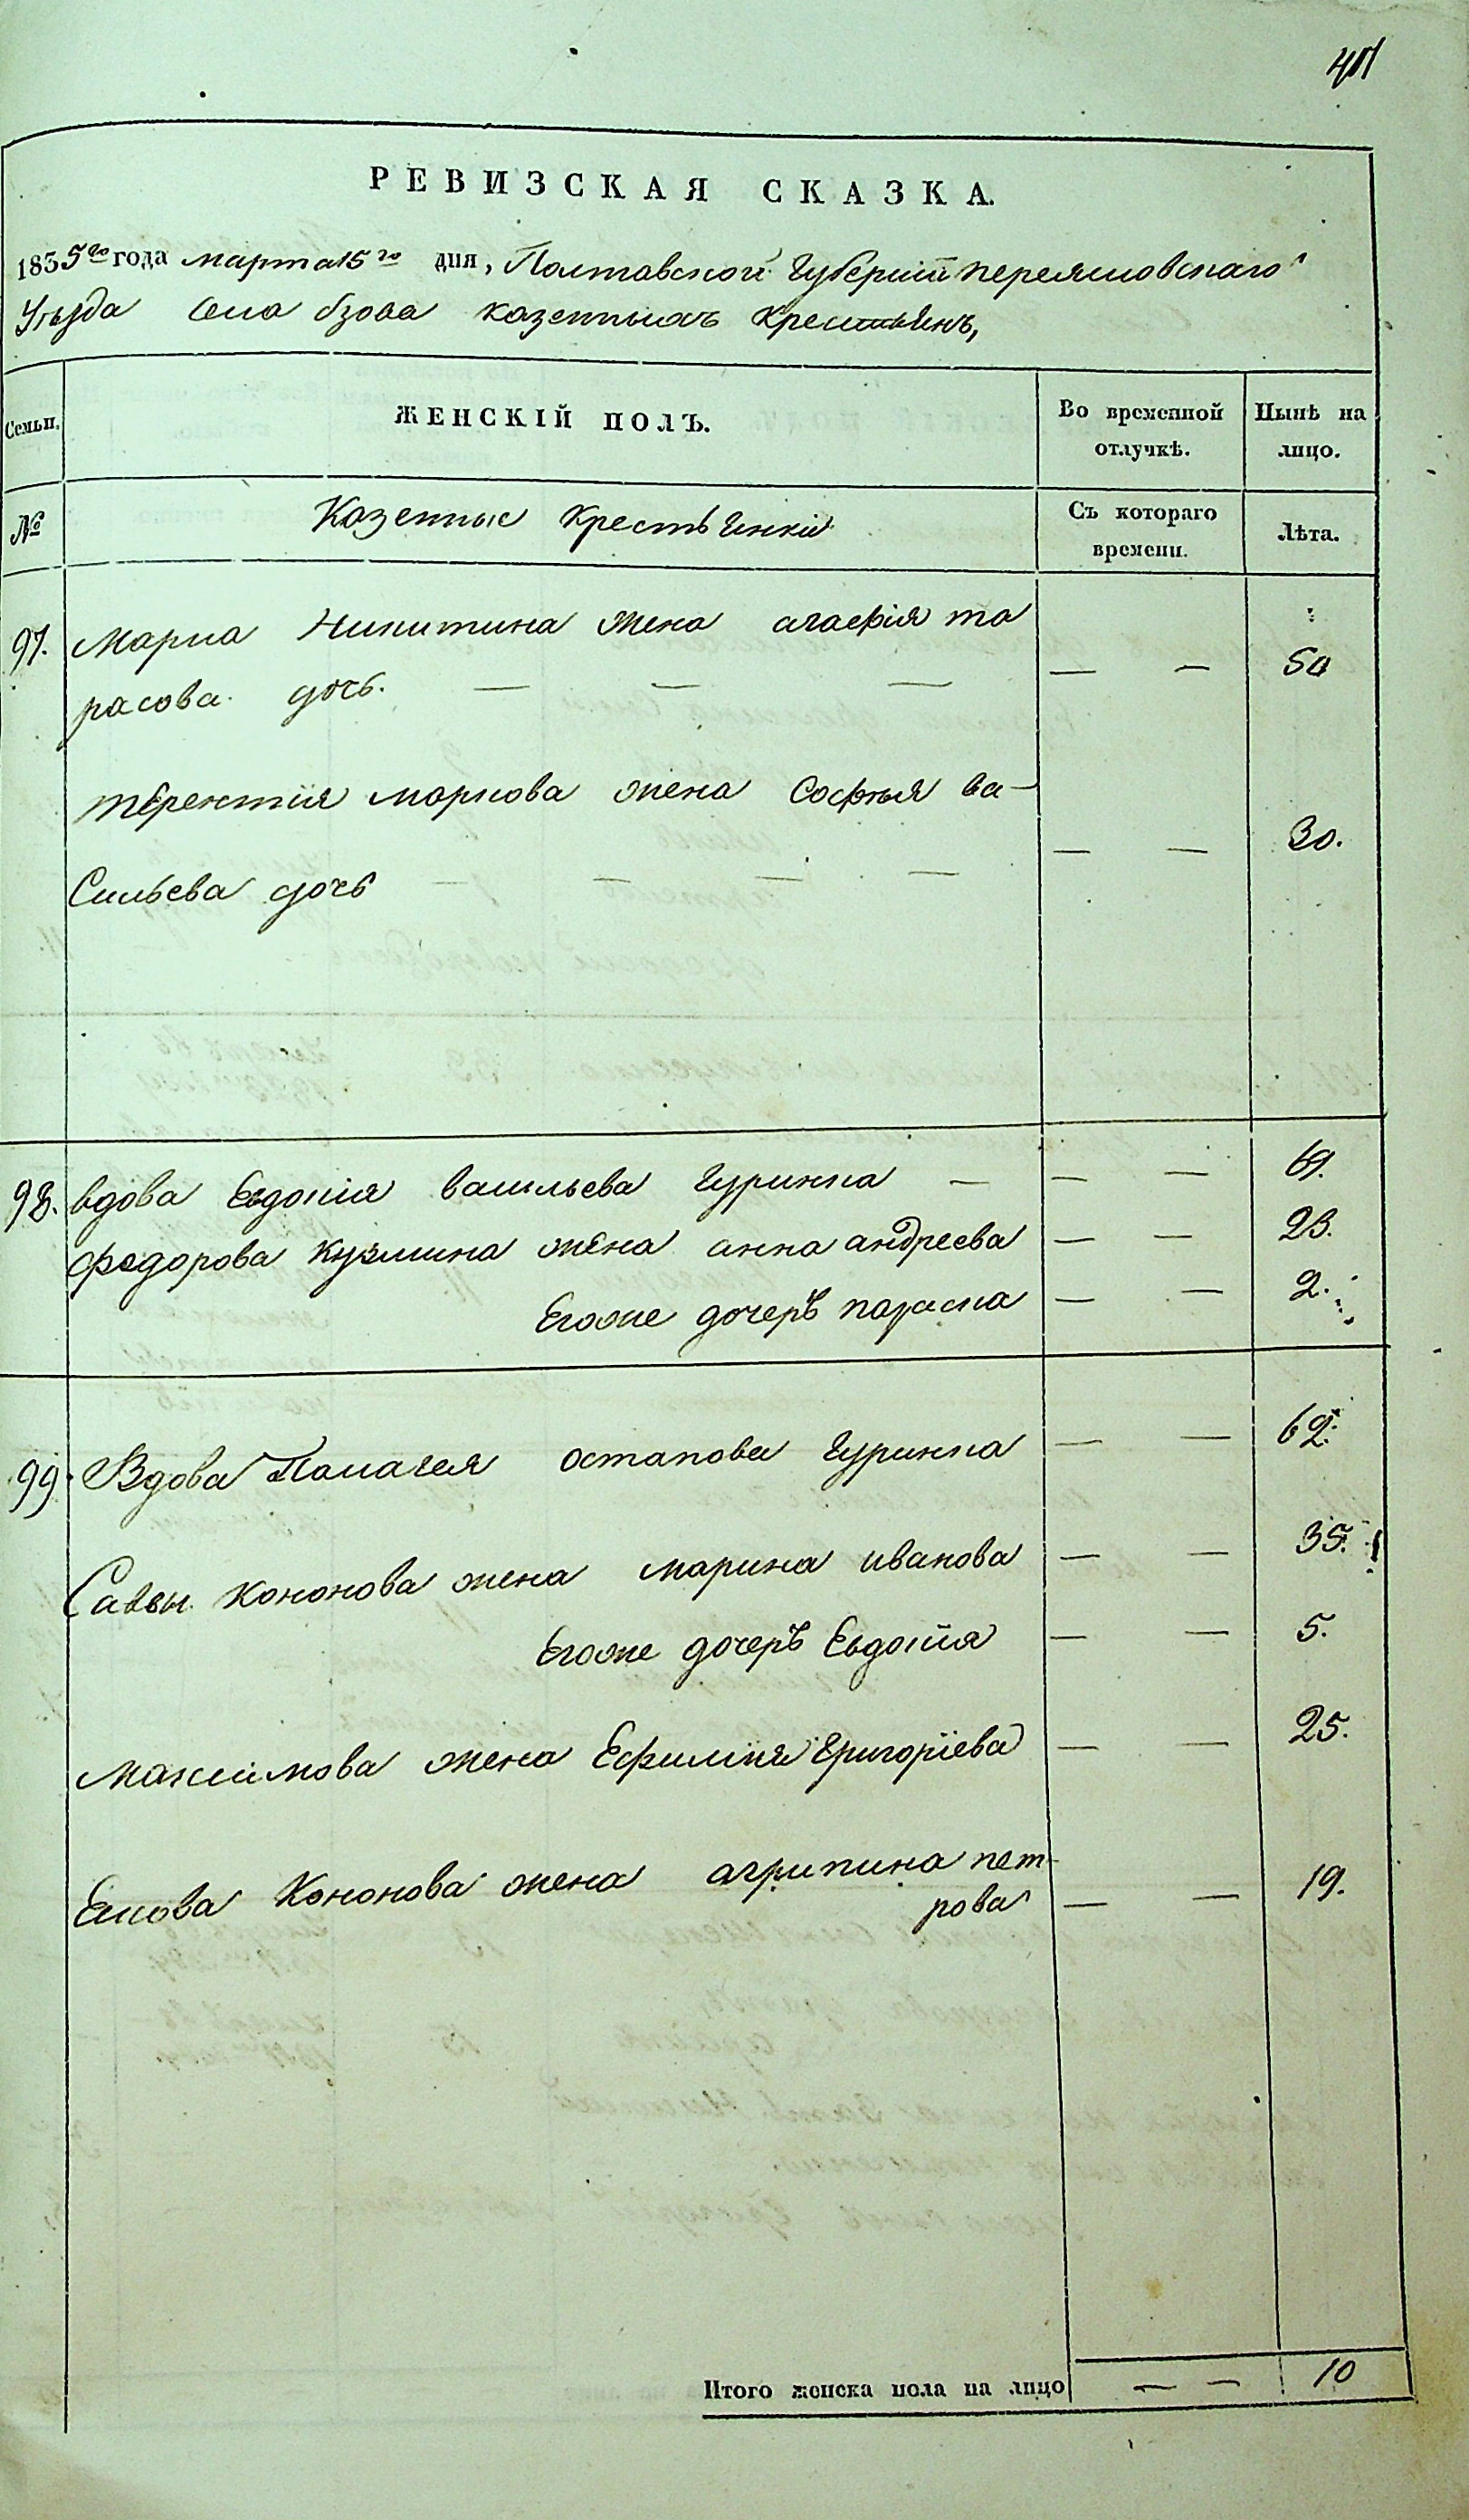 РЕВИЗСКАЯ СКАЗКА.
1835го года марта 15го дня, Полтавской Губернии переяславскаго
Уѣзда Села бзова казенныхъ Крестьянъ,
Семьи. ЖЕНСКІЙ ПОЛЪ. Во временной отлучкѣ. Нынѣ на лицо.
№ Казенные Крестьянки Съ котораго времени. Лѣта.
97. Марка Никитина жена агафія та
расова дочь. — — — — — 50
терентія маркова жена Софья ва-
— — 30.
Сильева дочь — — — —
98. вдова Евдокія васильева Гуринка — — — 61.
федорова кузмина жена анна андреева — — 23.
Егоже дочерь параска — — 2.
99. Вдова Палагея остапова Гуринка — — 62.
Саввы Кононова жена марина иванова — — 35.
Егоже дочерь Евдокія — — 5.
максимова жена Ефимія Григоріева — — 25.
Кононова жена агрипина пет-
рова — — 19.
Итого женска пола на лицо — — 10